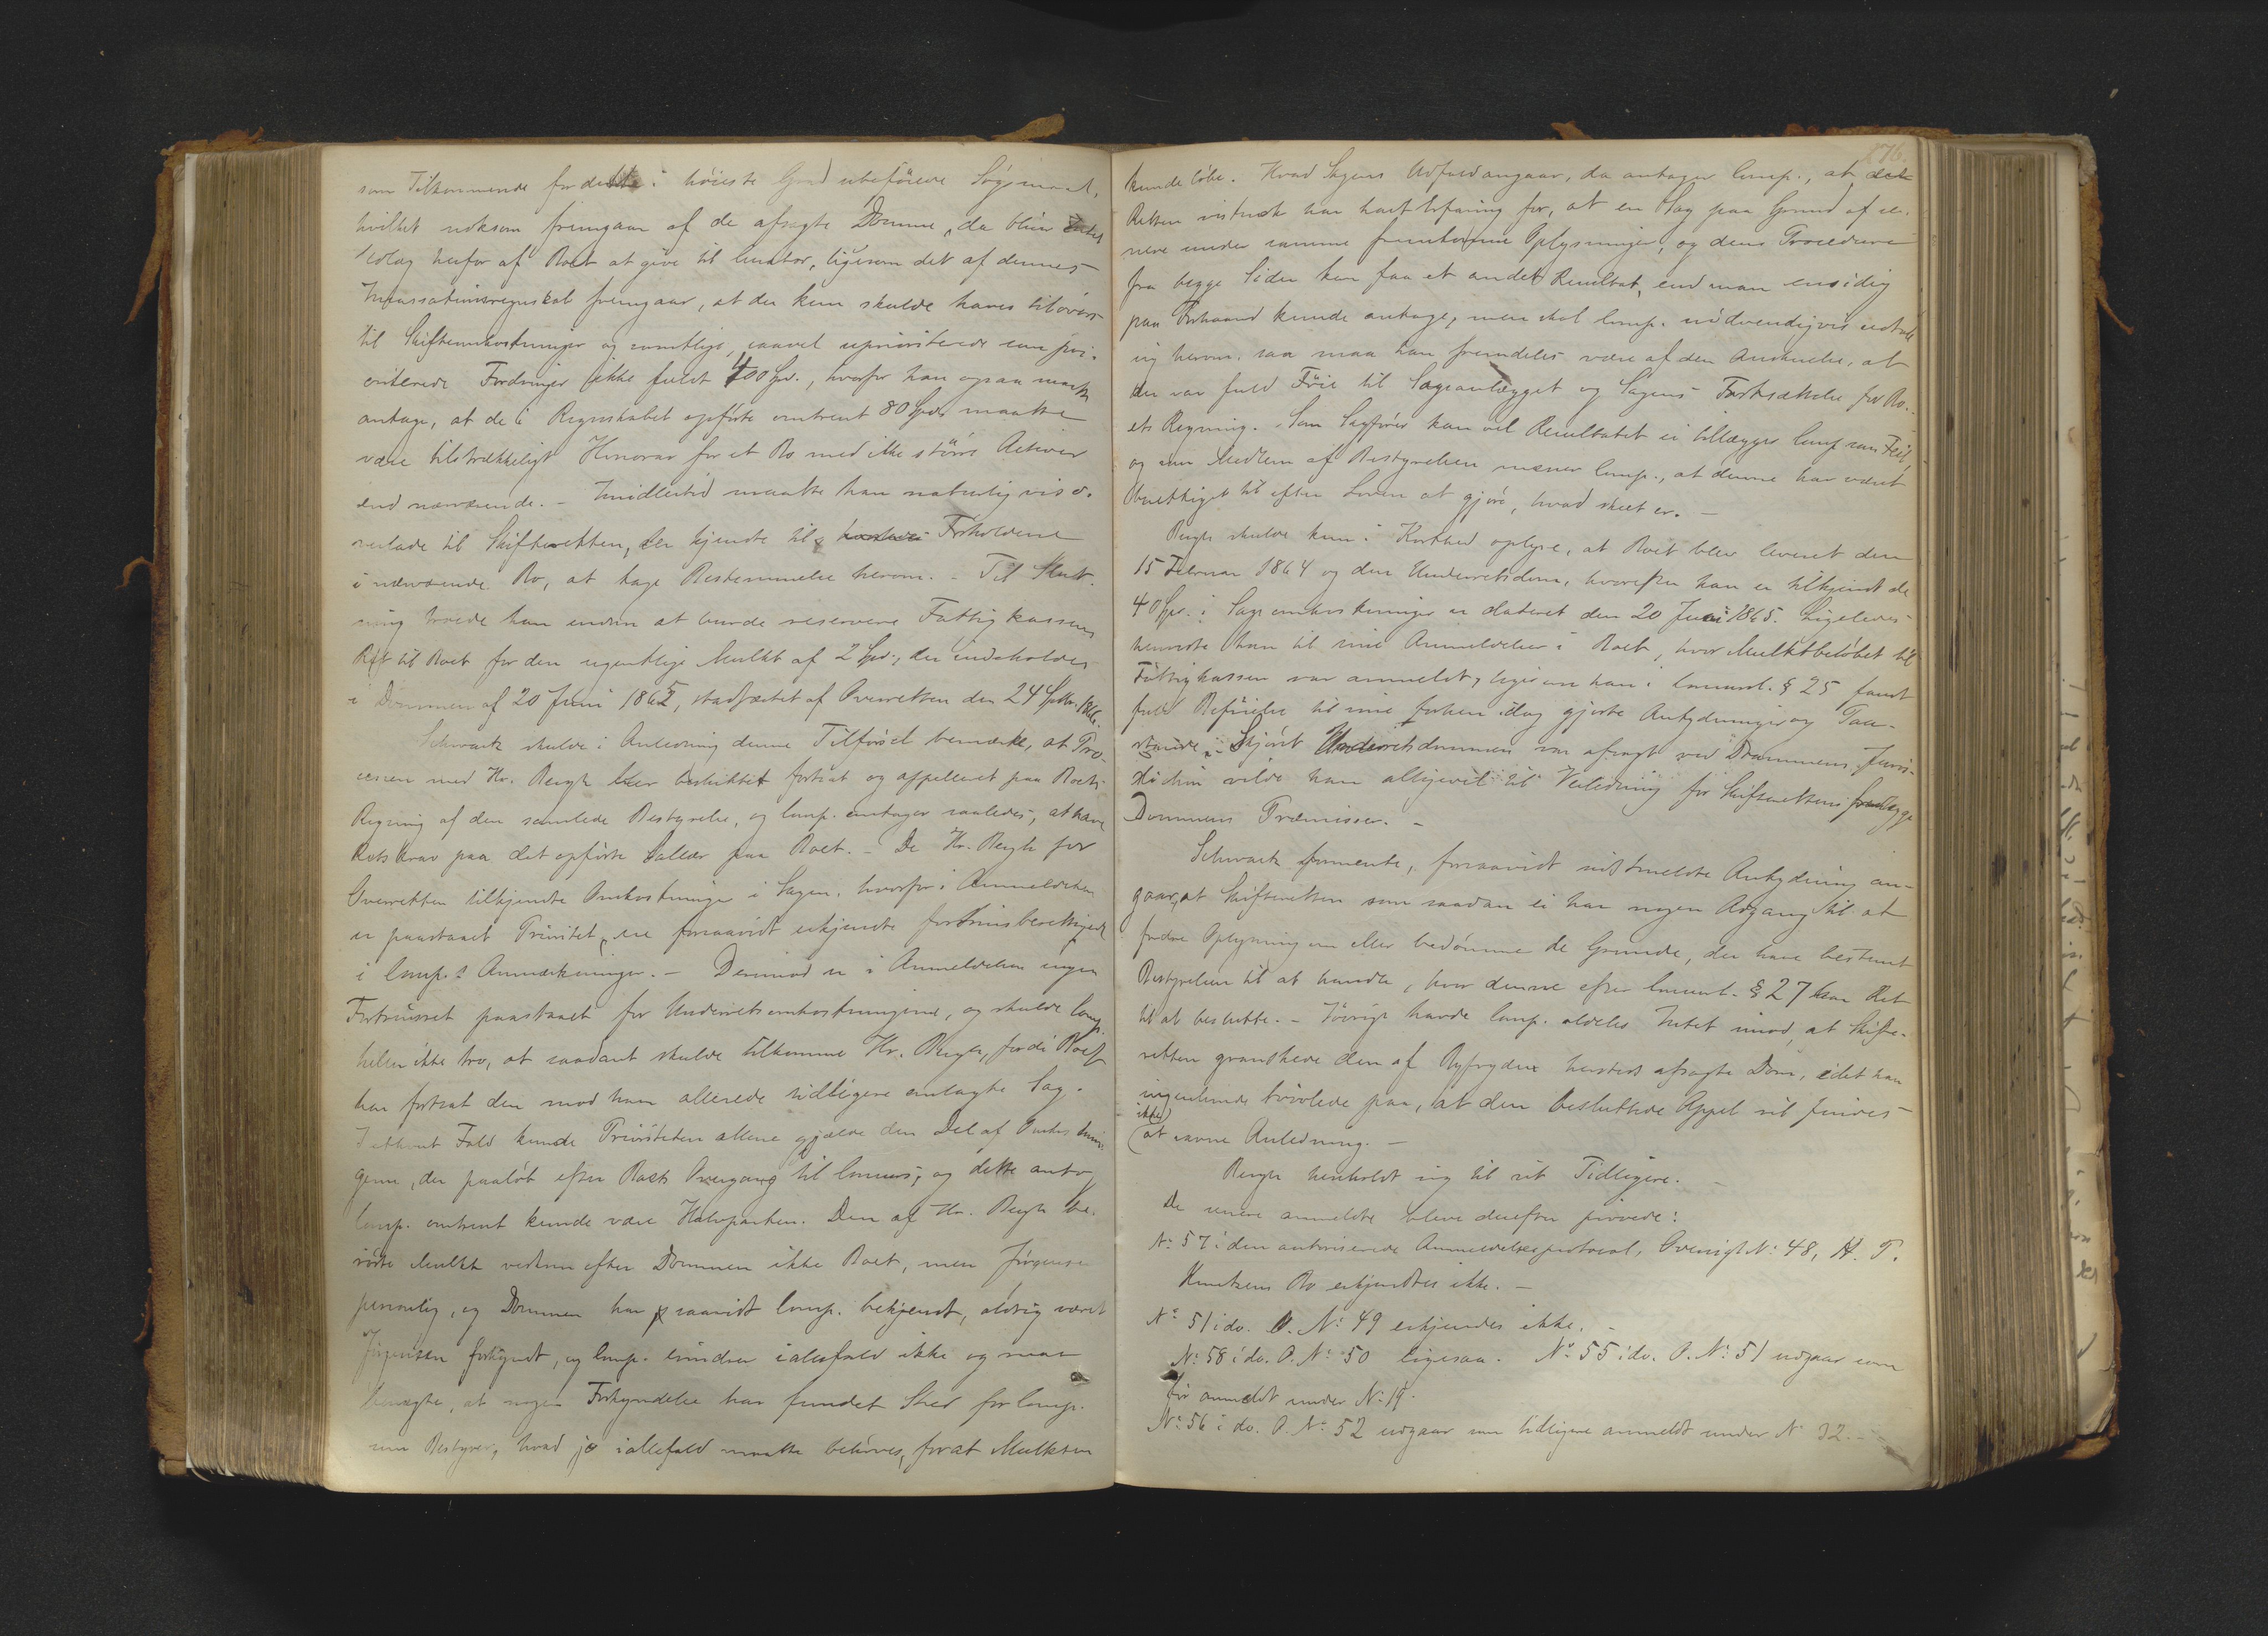 som Tilkommende for dette i høieste Grad ubeføiede Søgsmaal,
hvilket noksom fremgaar af de afsagte Domme, da bliver Intet
Udlæg herfor af Boet at give til Curator, ligesom det af dennes
Incassationsregnskab fremgaar, at der kun skulde haves tilovers
til Skifteomkostninger og samtlige, saavel upriviterede som pri-
oriterede Fordringer ikke fuldt 400 Spd., hvorfor han ogsaa maatte
antage, at de i Regnskabet opførte omtrent 80 Spd. maatte
være tilstrækkeligt Honorar for et Bo med ikke større Activer
end nærværende. - Imidlertid maatte han naturligvis o-
verlade til Skifteretten, der kjendte til Forholdene
i nærværende Bo, at tage Bestemmelse herom. - Til Slut-
ning troede han endnu at burde reservere Fattigkassens
Ret til Boet for den egentlige Mulkt af 2 Spd., der indeholdes
i Dommen af 20 Juni 1865, stadfæstet af Overretten den 24 Septbr. 1866.
Schwartz skulde i Anledning denne Tilførsel bemærke, at Pro-
cessen med Hr. Bergh blev besluttet fortsat og appelleret paa Boets
Regning af den samlede Bestyrelse, og Comp. antager saaledes, at have
Retskrav paa det opførte Salær paa Boet. - De Hr. Bergh for
Overretten tilkjendte Omkostninger i Sagen, hvorfor i Anmeldelsen
er paastaaet Prioritet, ere forsaavidt erkjendte fortrinsberettigede
i Comp.s Anmærkninger. - Derimod er i Anmeldelsen ingen
Fortrinsret paastaaet for Underretsomkostningerne, og skulde Comp.
heller ikke tro, at saadant skulde tilkomme Hr. Bergh, fordi Boet
har fortsat den mod ham allerede tidligere anlagte Sag.
I ethvert Fald kunde Prioriteten allene gjælde den Del af Omkostnin-
gerne, der paaløb efter Boets Overgang til Concurs, og dette antog
Comp. omtrent kunde være Halvparten. Den af Hr. Bergh be-
rørte Mulkt vedkom efter Dommen ikke Boet, men Jørgensen
personlig, og Dommen har saavidt Comp. bekjendt, aldrig været
Jørgensen forkyndt, og Comp. erindrer ialfald ikke og maa
benægte, at nogen Forkyndelse har fundet Sted for Comp.
som Bestyrer, hvad jo iallefald maatte behøves, forat Mulkten
876.
kunde løbe. Hvad Sagens Udfald angaar, da antager Comp., at
Retten vistnok har havt Erfaring for, at en Sag paa Grund af se-
nere under samme fremkomne Oplysninger, og dens Procedure
fra begge Sider kan faa et andet Resultat, end man ensidig
paa Forhaand kunde antage, men skal Comp. nødvendigvis udtale
sig herom, saa maa han fremdeles være af den Anskuelse, at
der var fuld Føie til Søgsanlægget og Sagens Fortsættelse for Bo-
ets Regning. Som Sagfører kan vel Resultatet ei tillægges Comp. som Feil,
og som Medlem af Bestyrelsen mener Comp., at denne har været
berettiget til efter Loven at gjøre, hvad skeet er. -
Bergh skulde kun i Korthed oplyse, at Boet blev leveret den
15 Februar 1864 og den Underretsdom, hvorefter han er tilkjendt de
40 Spd. i Sagsomkostninger er dateret den 20 Juni 1865. Ligeledes
henviste han til sine Anmeldelser i Boet, hvor Mulktbeløbet til
Fattigkassen var anmeldt, ligesom han i Concursl. § 25 fandt
fuld Beføielse til sine forhen idag gjorte Antydninger og Paa-
stande. - Skjønt Underretsdommen var afsagt ved Drammens Juris-
diction vilde han alligevel til Veiledning for Skifteretten fremlægge
Dommens Præmisser. -
Schwartz formente, forsaavidt sidstmeldte Antydning an-
gaar, at Skifteretten som saadan ei har nogen Adgang til at
fordre Oplysning om eller bedømme de Grunde, der have bestemt
Bestyrelsen til at handle, hvor denne efter Concursl. § 27 har Ret
til at beslutte. - Iøvrigt havde Comp. aldeles Intet imod, at Skifte-
retten granskede den af Byfogden hersteds afsagte Dom, idet han
ingenlunde tvivlede paa, at den besluttede Appel vil findes
ikke)
(at savne Anledning. -
Bergh henholdt sig til sit Tidligere. -
De senere anmeldte bleve derefter prøvede:
No 57 i den autoriserede Anmeldelsesprotocol, Oversigt No 48, H. P.
Knutzens Bo erkjendtes ikke. -
No 51 i do. O. No 49 erkjendes ikke. -
No 58 i do. O. No 50 ligesaa. No 55 i do. O. No 51 udgaar som
før anmeldt under No 19.
No 56 i do. O. No 52 udgaar som tidligere anmeldt under No 32. -